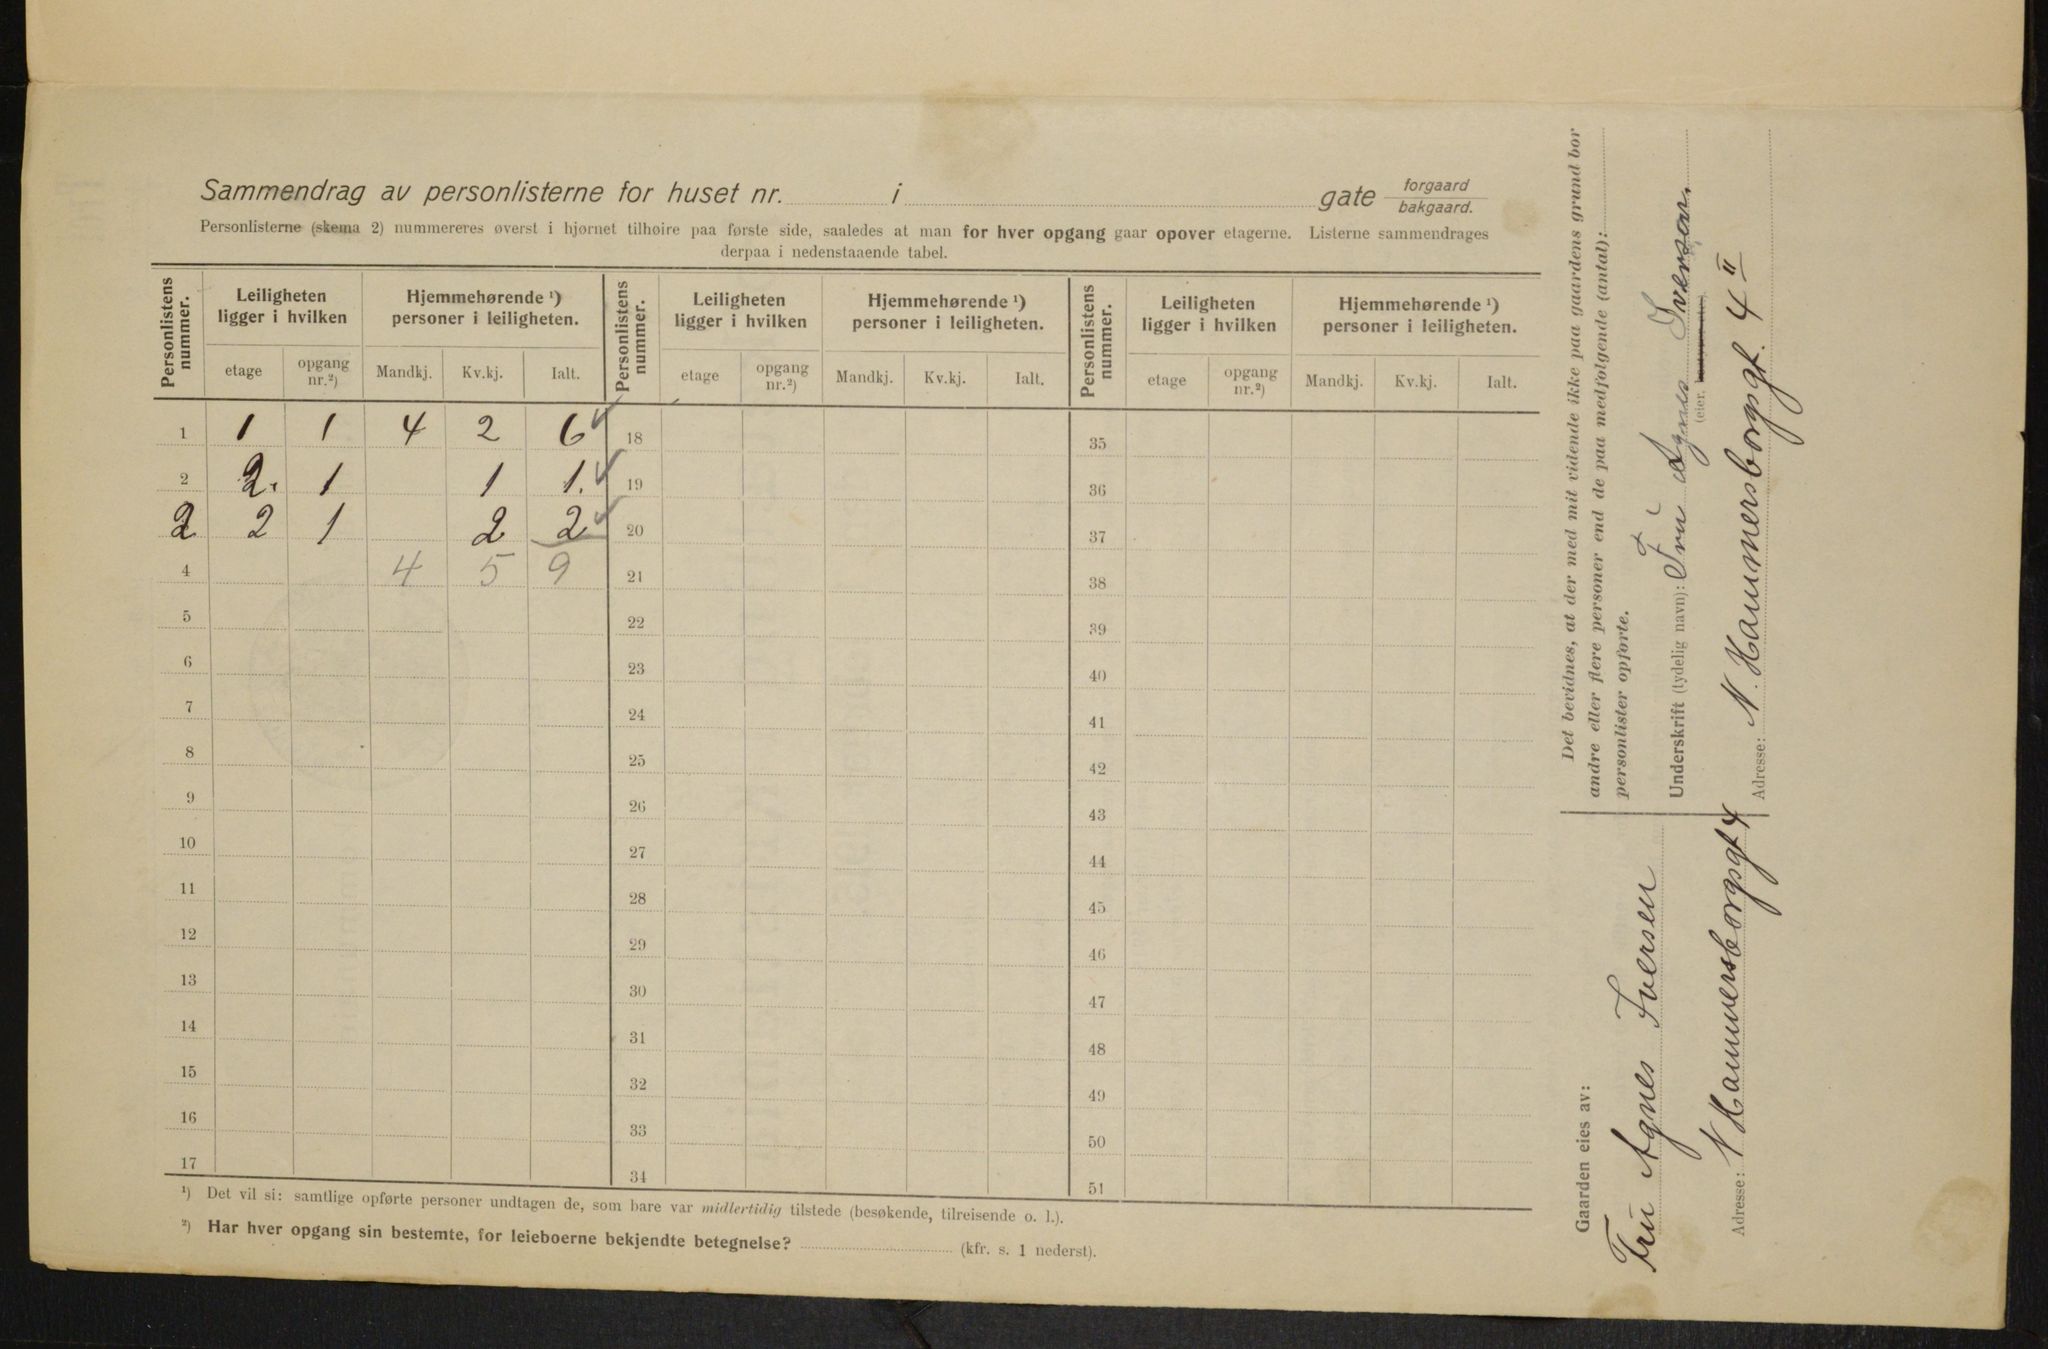 Sammendrag av personlisterne for huset nr. i gate forgaard bakgaard.
Personlisterne (skema 2) nummereres øverst i hjørnet tilhøire paa første side, saaledes at man for hver opgang gaar opover etagerne. Listerne sammendrages
derpaa i nedenstaaende tabel.
Personlistens nummer. Leiligheten ligger i hvilken Hjemmehørende ¹) personer i leiligheten. Personlistens nummer. Leiligheten ligger i hvilken Hjemmehørende ¹) personer i leiligheten. Personlistens nummer. Leiligheten ligger i hvilken Hjemmehørende ¹) personer i leiligheten.
etage opgang nr.²) Mandkj. Kv.kj. Ialt. etage opgang nr.²) Mandkj. Kv.kj. Ialt. etage opgang nr.²) Mandkj. Kv.kj. Ialt.
1 1 1 4 2 6 18 35
2 2. 1 1 1. 19 36
2 2 1 2 2 20 37
4 4 5 9 21 38
5 22 39
6 23 40
7 24 41
8 25 42
9 26 43
10 27 44
11 28 45
12 29 46
13 30 47
14 31 48
15 32 49
16 33 50
17 34 51
¹) Det vil si: samtlige opførte personer undtagen de, som bare var midlertidig tilstede (besøkende, tilreisende o. l.).
²) Har hver opgang sin bestemte, for leieboerne bekjendte betegnelse? (kfr. s. 1 nederst).
Det bevidnes, at der med mit vidende ikke paa gaardens grund bor
andre eller flere personer end de paa medfølgende (antal):
personlister opførte.
Underskrift (tydelig navn): Fru Agnes Iversen
(eier,
Adresse: N. Hammersborggt. 4 II
Gaarden eies av:
Fru Agnes Iversen
Adresse: N Hammersborgsgt 4